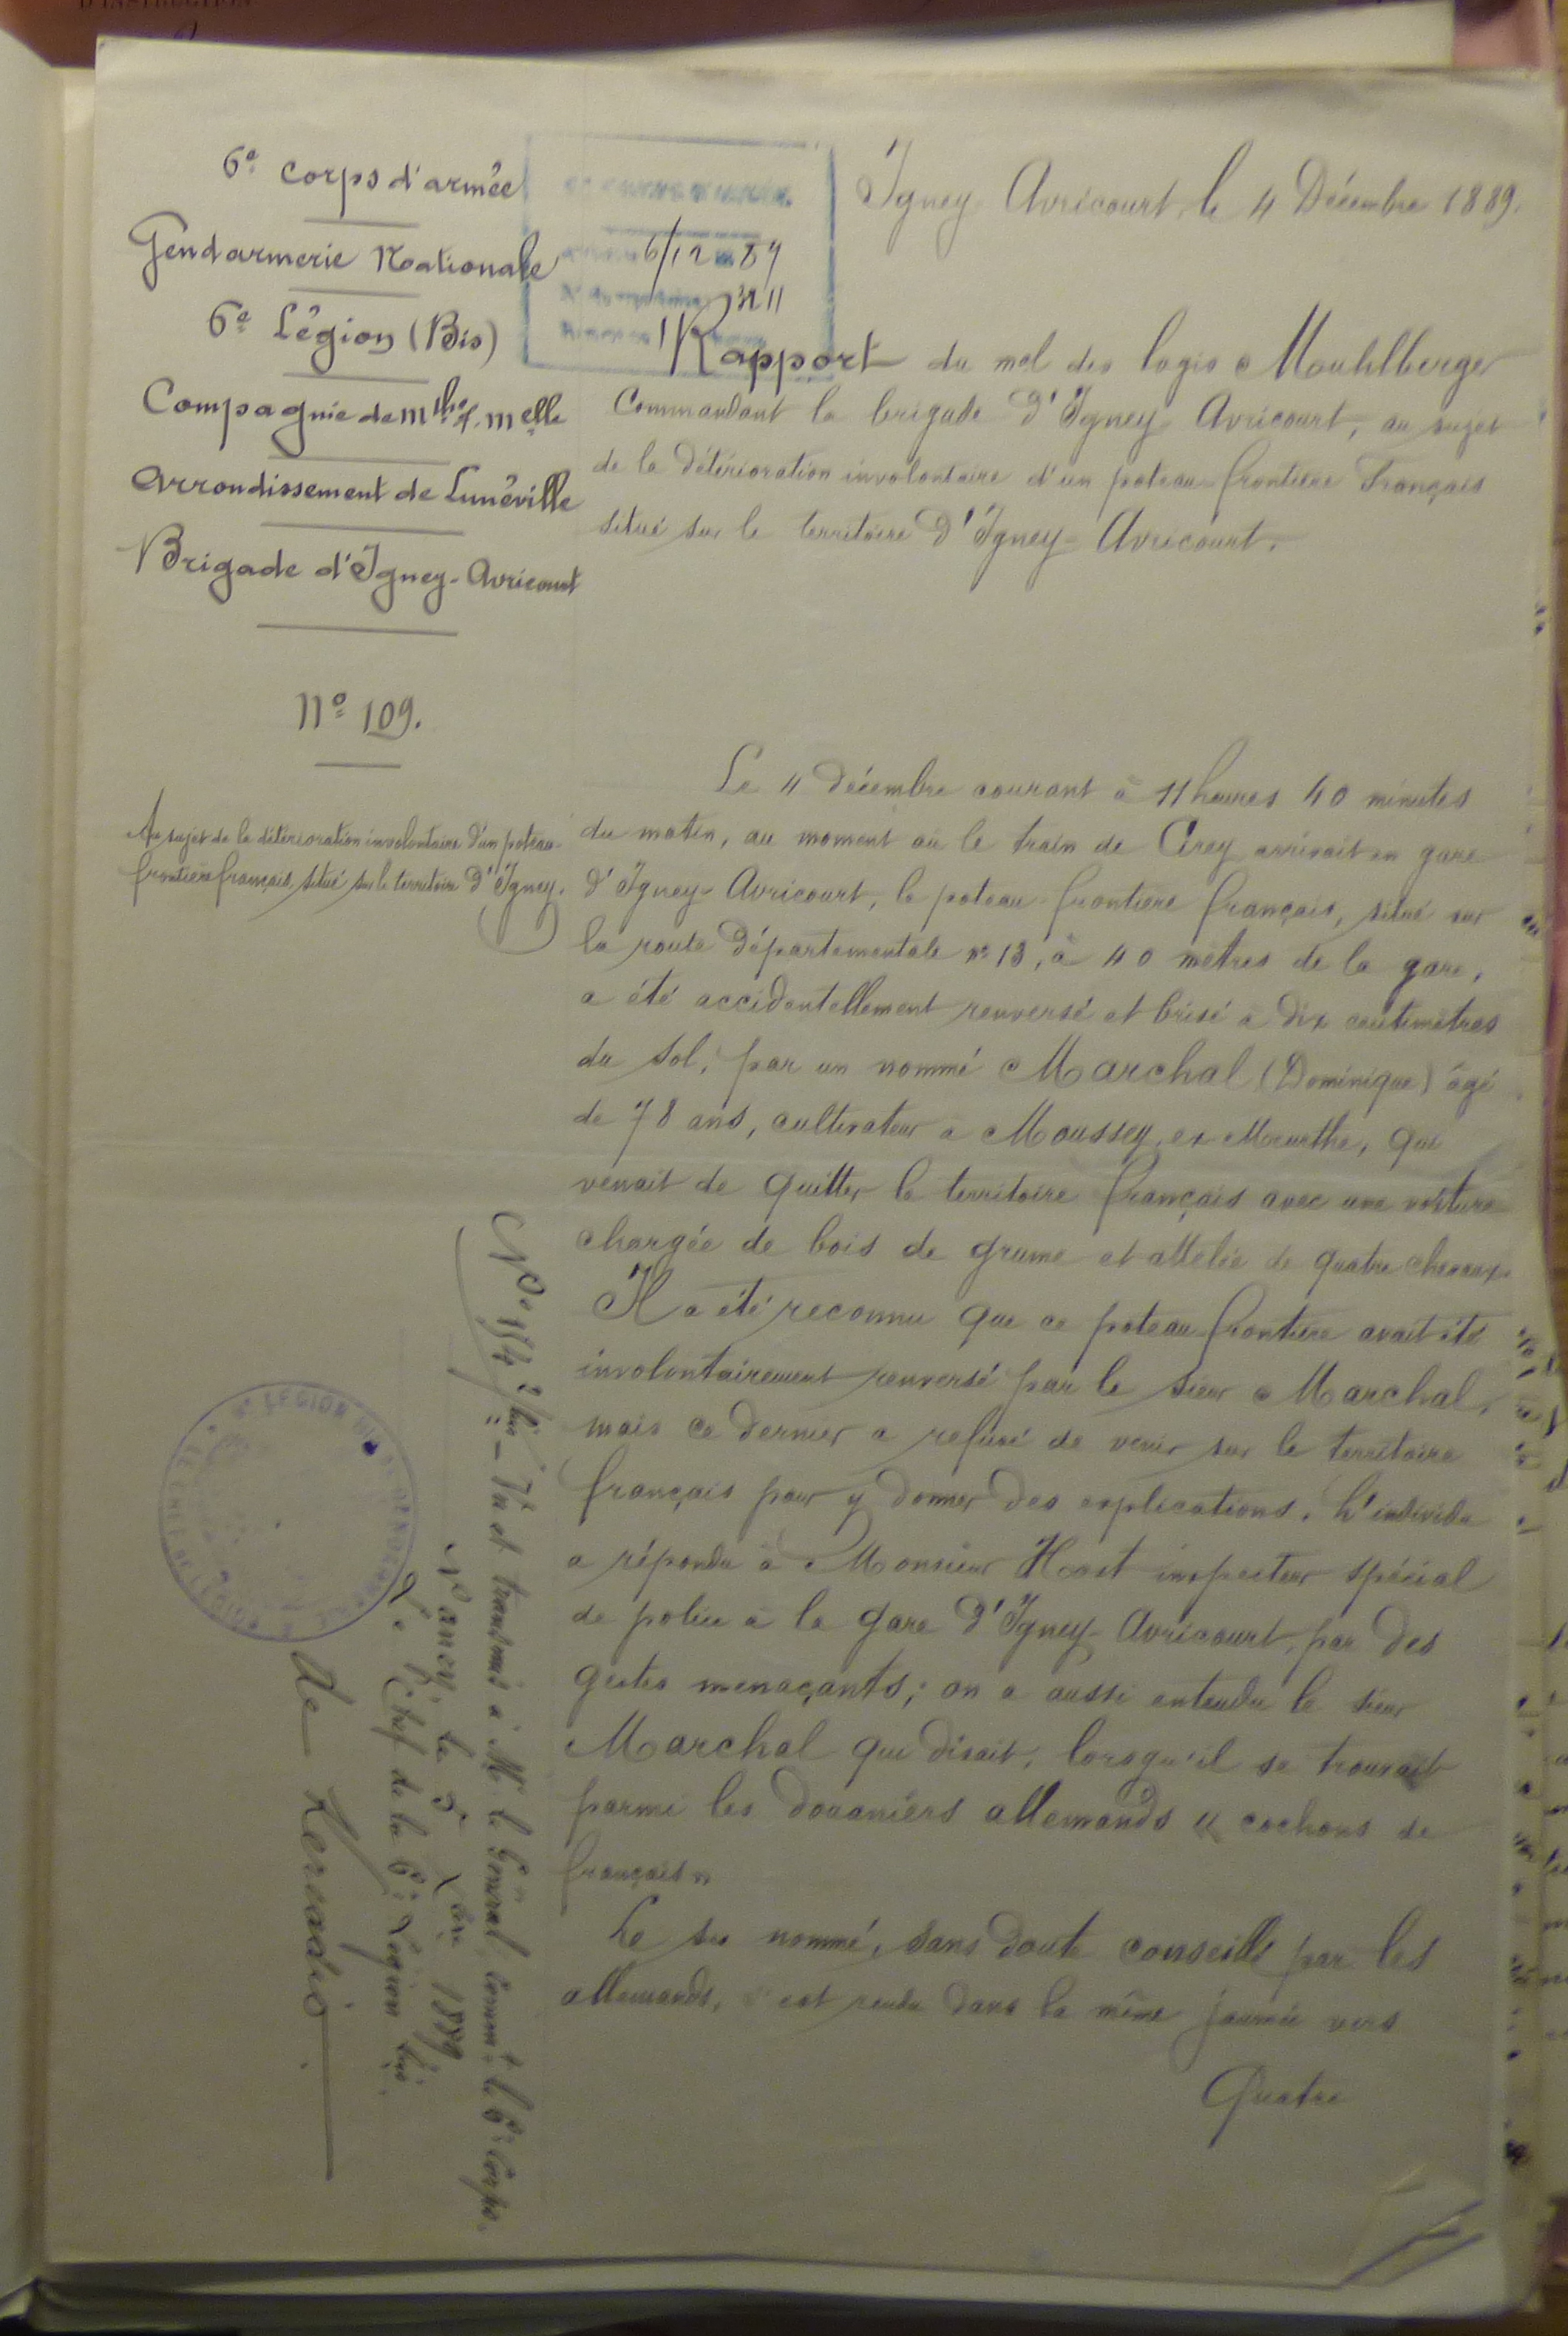 D'INSTRUCTION
6e Corps d'armée
Gendarmerie Nationale
6e Légion (Bis)
Compagnie de Mthe & Melle
Arrondissement de Lunéville
Brigade d'Igney-Avricourt
N° 109.
Au sujet de la détérioration involontaire d'un poteau-
frontière français, situé sur le territoire d'Igney.
6/12 89
Igney Avricourt, le 4 Décembre 1889.
Rapport du mal des logis Mouhlberger
Commandant la brigade d'Igney-Avricourt, au sujet
de la détérioration involontaire d'un poteau-frontière Français
situé sur le territoire d'Igney-Avricourt.
Le 4 décembre courant à 11 heures 40 minutes
du matin, au moment où le train de Cirey arrivait en gare
d'Igney-Avricourt, le poteau-frontière français, situé sur
la route départementale n° 13, à 40 mètres de la gare,
a été accidentellement renversé et brisé à dix centimètres
du sol, par un nommé Marchal (Dominique) âgé
de 78 ans, cultivateur à Moussey, ex Meurthe, qui
venait de quitter le territoire français avec une voiture
chargée de bois de grume et attelée de quatre chevaux.
Il a été reconnu que ce poteau frontière avait été
involontairement renversé par le sieur Marchal,
mais ce dernier a refusé de venir sur le territoire
français pour y donner des explications. L'individu
a répondu à Monsieur Host inspecteur spécial
de police à la gare d'Igney-Avricourt, par des
gestes menaçants; on a aussi entendu le sieur
Marchal qui disait, lorsqu'il se trouvait
parmi les douaniers allemands « cochons de
français »
Le sus nommé, sans doute conseillé par les
allemands, s'est rendu dans la même journée vers
Quatre
Vu et transmis à Mr le Général Commt le 6e Corps.
Nancy, le 5 Xbre 1889
Le Chef de la 6e Légion bis,
de Kersabio